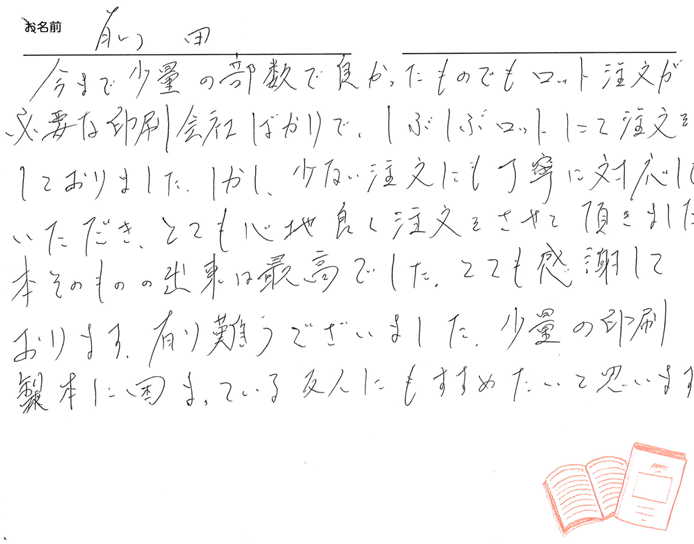 お名前
前 田
今まで少量の部数で良かったものでもロット注文が
必要な印刷会社ばかりで、しぶしぶロットにて注文を
しておりました。しかし、少ない注文にも丁寧に対応して
いただき、とても心地良く注文をさせて頂きました
本そのものの出来は最高でした。とても感謝して
おります。有り難うございました。少量の印刷
製本に困まっている友人にもすすめたいと思います